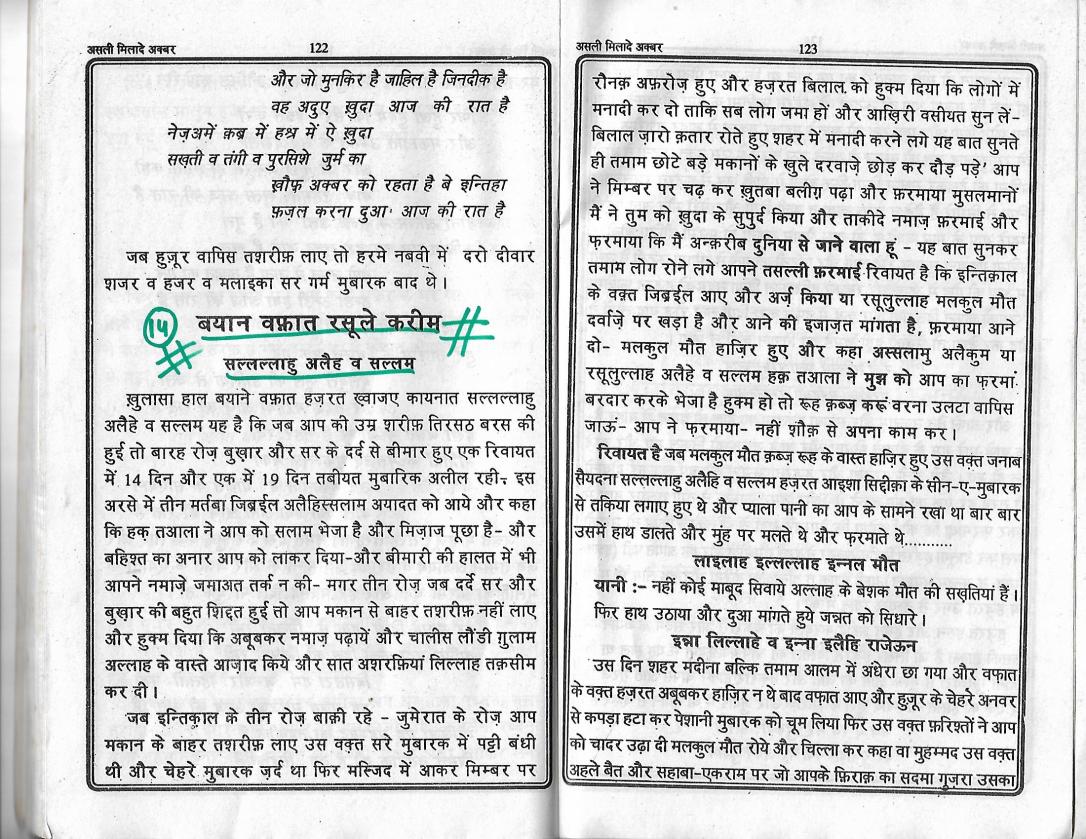 असली मिलादे अक्बर 122
और जो मुनकिर है जाहिल है जिनदीक है
वह अदुए ख़ुदा आज की रात है
नेज़अमें क़ब्र में हश्र में ऐ ख़ुदा
सख़्ती व तंगी व पुरसिशे जुर्म का
ख़ौफ़ अक्बर को रहता है बे इन्तिहा
फ़ज़ल करना दुआ' आज की रात है
जब हुज़ूर वापिस तशरीफ़ लाए तो हरमे नबवी में दरो दीवार
शजर व हजर व मलाइका सर गर्म मुबारक बाद थे।
14 बयान वफ़ात रसूले करीम
सल्लल्लाहु अलैह व सल्लम
ख़ुलासा हाल बयाने वफ़ात हज़रत ख़्वाजए कायनात सल्लल्लाहु
अलैहे व सल्लम यह है कि जब आप की उम्र शरीफ़ तिरसठ बरस की
हुई तो बारह रोज़ बुख़ार और सर के दर्द से बीमार हुए एक रिवायत
में 14 दिन और एक में 19 दिन तबीयत मुबारिक अलील रही- इस
अरसे में तीन मर्तबा जिब्रईल अलैहिस्सलाम अयादत को आये और कहा
कि हक़ तआला ने आप को सलाम भेजा है और मिज़ाज पूछा है- और
बहिश्त का अनार आप को लाकर दिया-और बीमारी की हालत में भी
आपने नमाज़े जमाअत तर्क न की- मगर तीन रोज़ जब दर्दे सर और
बुख़ार की बहुत शिद्दत हुई तो आप मकान से बाहर तशरीफ़ नहीं लाए
और हुक्म दिया कि अबूबकर नमाज़ पढ़ायें और चालीस लौंडी ग़ुलाम
अल्लाह के वास्ते आज़ाद किये और सात अशरफ़ियां लिल्लाह तक़सीम
कर दी।
जब इन्तिक़ाल के तीन रोज़ बाक़ी रहे - जुमेरात के रोज़ आप
मकान के बाहर तशरीफ़ लाए उस वक़्त सरे मुबारक में पट्टी बंधी
थी और चेहरे मुबारक ज़र्द था फिर मस्जिद में आकर मिम्बर पर
असली मिलादे अक्बर 123
रौनक़ अफ़रोज़ हुए और हज़रत बिलाल को हुक्म दिया कि लोगों में
मनादी कर दो ताकि सब लोग जमा हों और आख़िरी वसीयत सुन लें-
बिलाल ज़ारो क़तार रोते हुए शहर में मनादी करने लगे यह बात सुनते
ही तमाम छोटे बड़े मकानों के खुले दरवाज़े छोड़ कर दौड़ पड़े' आप
ने मिम्बर पर चढ़ कर ख़ुतबा बलीग़ पढ़ा और फ़रमाया मुसलमानों
मैं ने तुम को ख़ुदा के सुपुर्द किया और ताकीदे नमाज़ फ़रमाई और
फ़रमाया कि मैं अन्क़रीब दुनिया से जाने वाला हूं - यह बात सुनकर
तमाम लोग रोने लगे आपने तसल्ली फ़रमाई रिवायत है कि इन्तिक़ाल
के वक़्त जिब्रईल आए और अर्ज़ किया या रसूलुल्लाह मलकुल मौत
दर्वाज़े पर खड़ा है और आने की इजाज़त मांगता है, फ़रमाया आने
दो- मलकुल मौत हाज़िर हुए और कहा अस्सलामु अलैकुम या
रसूलुल्लाह अलैहे व सल्लम हक़ तआला ने मुझ को आप का फ़रमां
बरदार करके भेजा है हुक्म हो तो रूह क़ब्ज़ करूं वरना उलटा वापिस
जाऊं- आप ने फ़रमाया- नहीं शौक़ से अपना काम कर।
रिवायत है जब मलकुल मौत क़ब्ज़ रूह के वास्त हाज़िर हुए उस वक़्त जनाब
सैयदना सल्लल्लाहु अलैहि व सल्लम हज़रत आइशा सिद्दीक़ा के सीन-ए-मुबारक
से तकिया लगाए हुए थे और प्याला पानी का आप के सामने रखा था बार बार
उसमें हाथ डालते और मुंह पर मलते थे और फ़रमाते थे..........
लाइलाह इल्लल्लाह इन्नल मौत
यानी :- नहीं कोई माबूद सिवाये अल्लाह के बेशक मौत की सख़्तियां हैं।
फिर हाथ उठाया और दुआ मांगते हुये जन्नत को सिधारे।
इन्ना लिल्लाहे व इन्ना इलैहि राजेऊन
उस दिन शहर मदीना बल्कि तमाम आलम में अंधेरा छा गया और वफ़ात
के वक़्त हज़रत अबूबकर हाज़िर न थे बाद वफ़ात आए और हुज़ूर के चेहरे अनवर
से कपड़ा हटा कर पेशानी मुबारक को चूम लिया फिर उस वक़्त फ़रिश्तों ने आप
को चादर उढ़ा दी मलकुल मौत रोये और चिल्ला कर कहा वा मुहम्मद उस वक़्त
अहले बैत और सहाबा-एकराम पर जो आपके फ़िराक़ का सदमा गुज़रा उसका